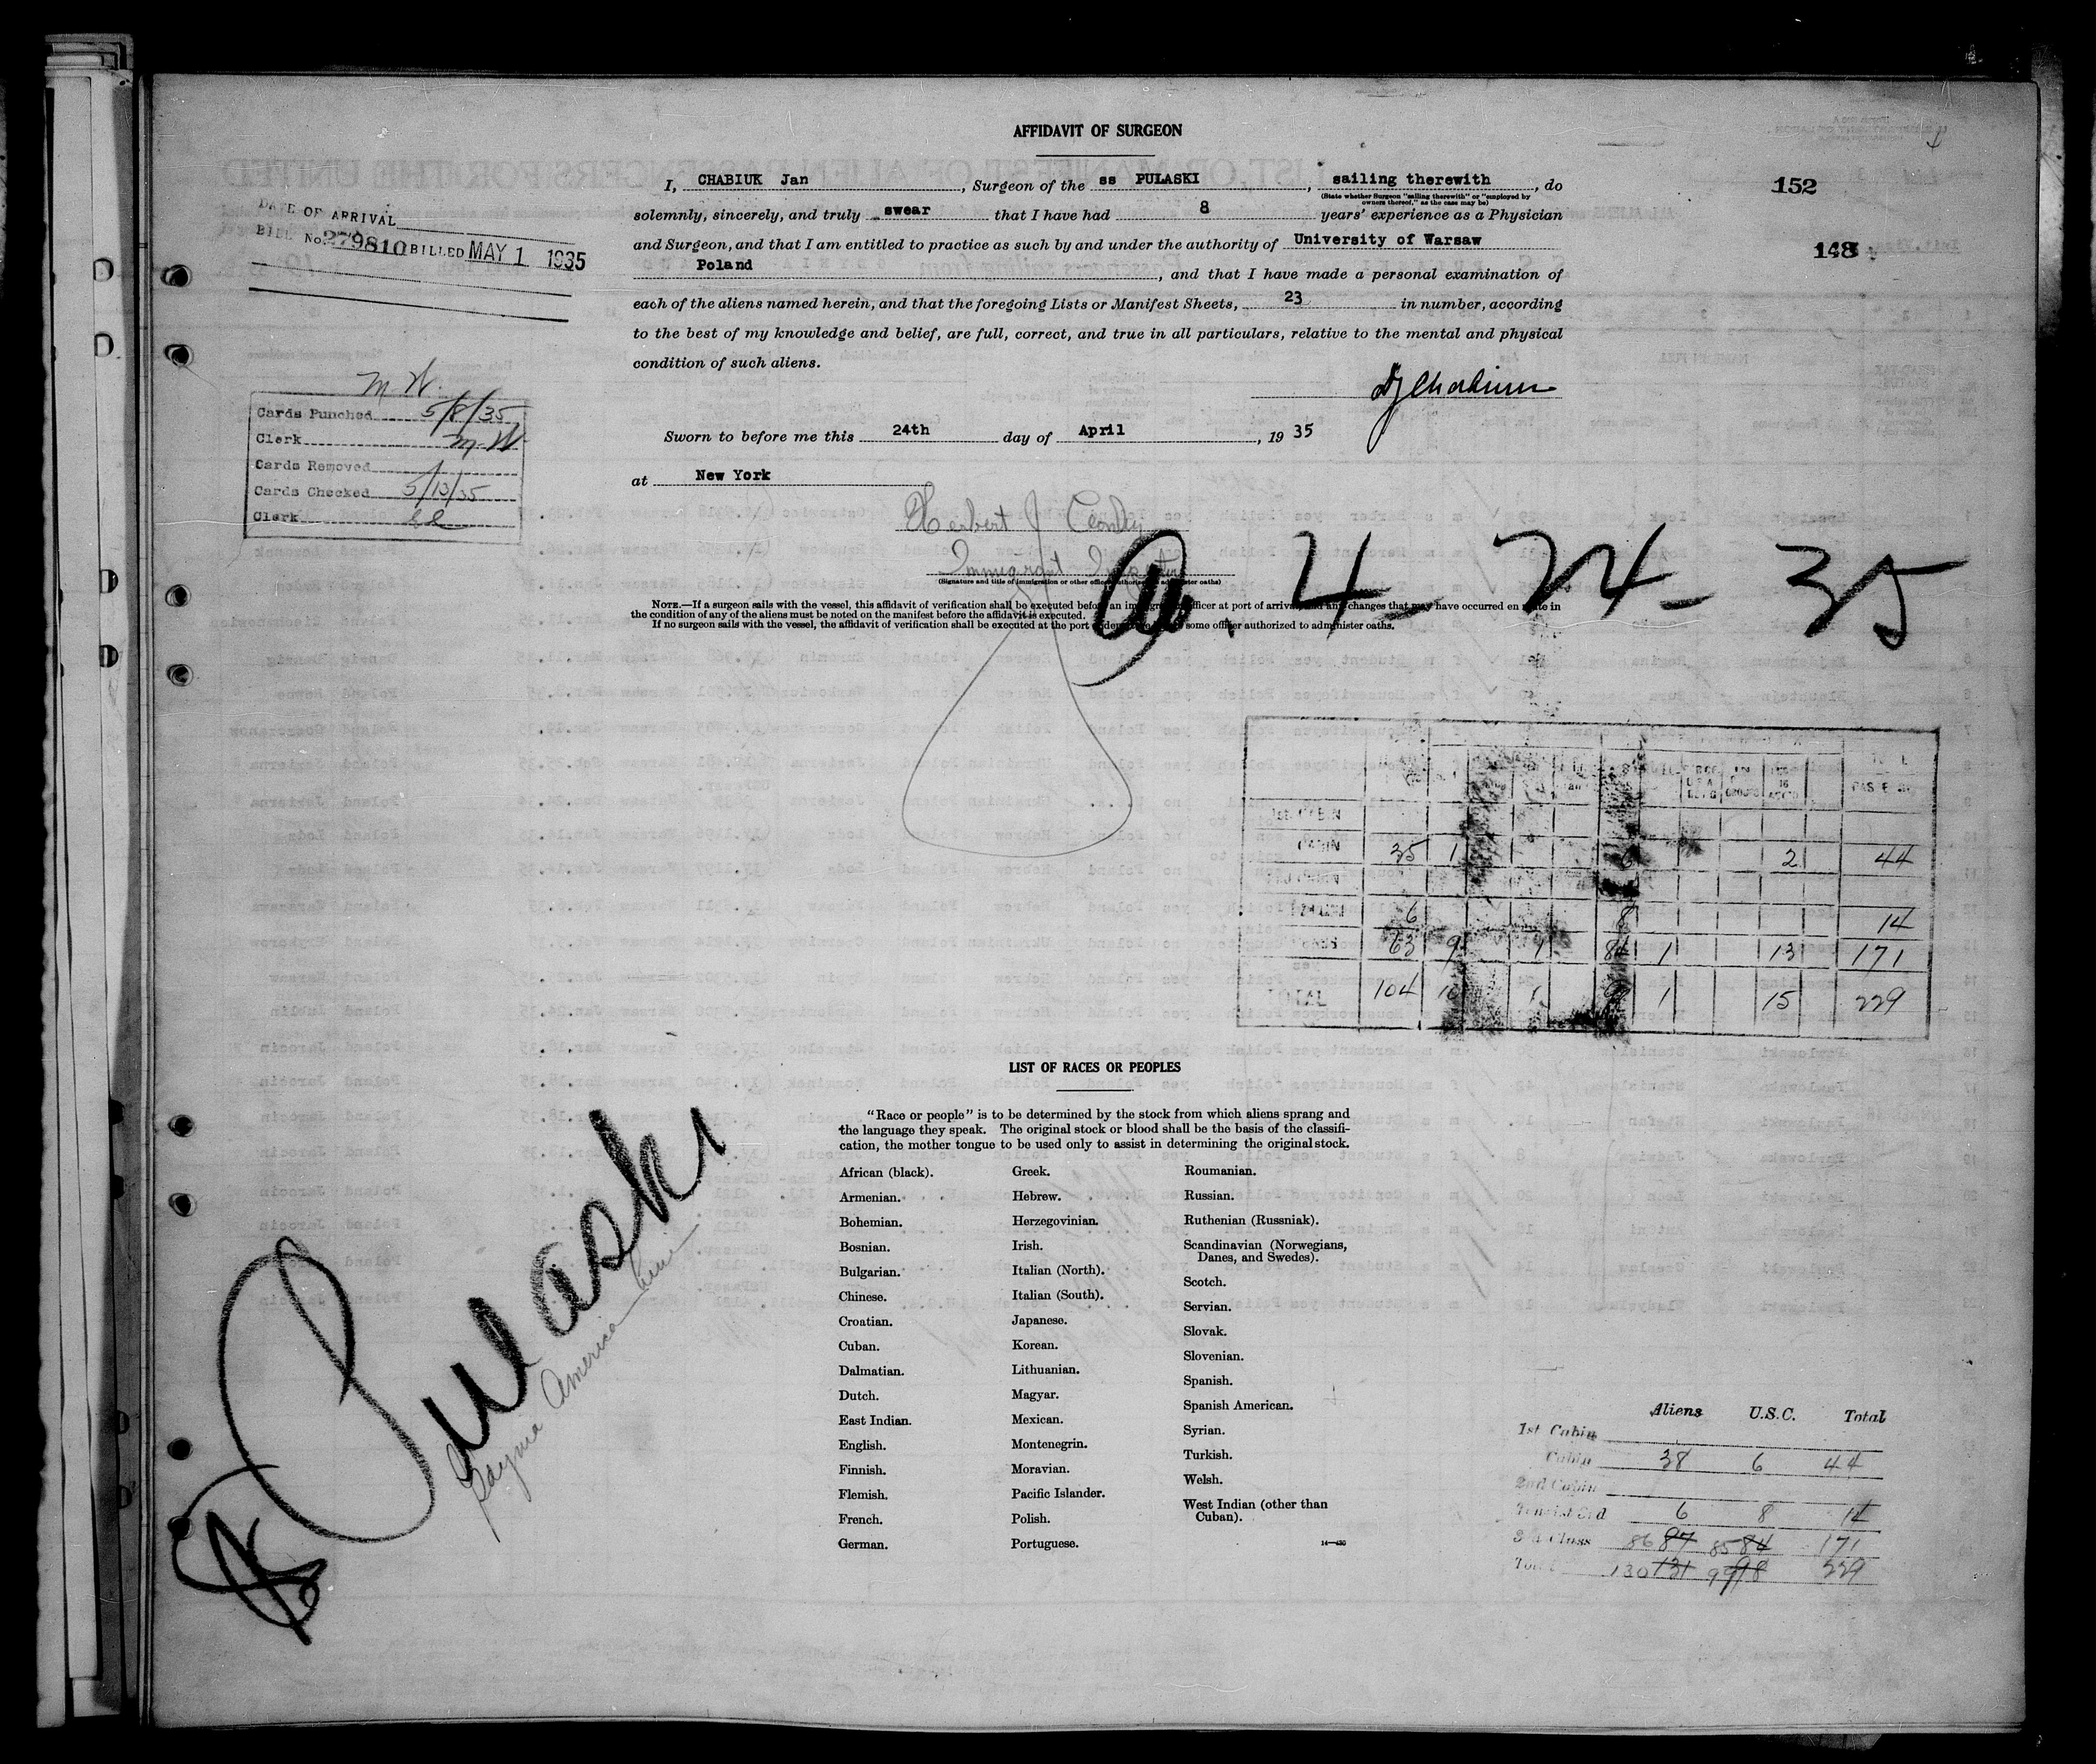 AFFIDAVIT OF SURGEON
I, CHABIUK Jan, Surgeon of the ss PULASKI, sailing therewith, do
(State whether Surgeon "sailing therewith" or "employed by
owners thereof," as the case may be)
solemnly, sincerely, and truly swear that I have had 8 years' experience as a Physician
and Surgeon, and that I am entitled to practice as such by and under the authority of University of Warsaw
Poland, and that I have made a personal examination of
each of the aliens named herein, and that the foregoing Lists or Manifest Sheets, 23 in number, according
to the best of my knowledge and belief, are full, correct, and true in all particulars, relative to the mental and physical
condition of such aliens.
Sworn to before me this 24th day of April, 19 35
at New York
Herbert J
Immigrant Inspector
(Signature and title of immigration or other officer authorized to administer oaths)
NOTE.—If a surgeon sails with the vessel, this affidavit of verification shall be executed before an immigration officer at port of arrival, and any changes that may have occurred en route in
the condition of any of the aliens must be noted on the manifest before the affidavit is executed.
If no surgeon sails with the vessel, the affidavit of verification shall be executed at the port of departure before some officer authorized to administer oaths.
152
148
DATE OF ARRIVAL
BILL No. 279810 BILLED MAY 1 1935
M.W.
Cards Punched 5/8/35
Clerk M.W
Cards Removed
Cards Checked 5/13/35
Clerk
4-24-35
CABIN 35 1 6 2 44
6 8 14
63 9 1 84 1 13 171
TOTAL 104 10 1 1 15 229
LIST OF RACES OR PEOPLES
"Race or people" is to be determined by the stock from which aliens sprang and
the language they speak. The original stock or blood shall be the basis of the classifi-
cation, the mother tongue to be used only to assist in determining the original stock.
African (black).
Armenian.
Bohemian.
Bosnian.
Bulgarian.
Chinese.
Croatian.
Cuban.
Dalmatian.
Dutch.
East Indian.
English.
Finnish.
Flemish.
French.
German.
Greek.
Hebrew.
Herzegovinian.
Irish.
Italian (North).
Italian (South).
Japanese.
Korean.
Lithuanian.
Magyar.
Mexican.
Montenegrin.
Moravian.
Pacific Islander.
Polish.
Portuguese.
Roumanian.
Russian.
Ruthenian (Russniak).
Scandinavian (Norwegians,
Danes, and Swedes).
Scotch.
Servian.
Slovak.
Slovenian.
Spanish.
Spanish American.
Syrian.
Turkish.
Welsh.
West Indian (other than
Cuban).
SS Pulaski
Gdynia America Line
Aliens U.S.C. Total
1st Cabin
Cabin 38 6 44
2nd Cabin
Tourist 3rd 6 8 14
3rd Class 86 87 85 84 171
Total 130 131 99 98 229